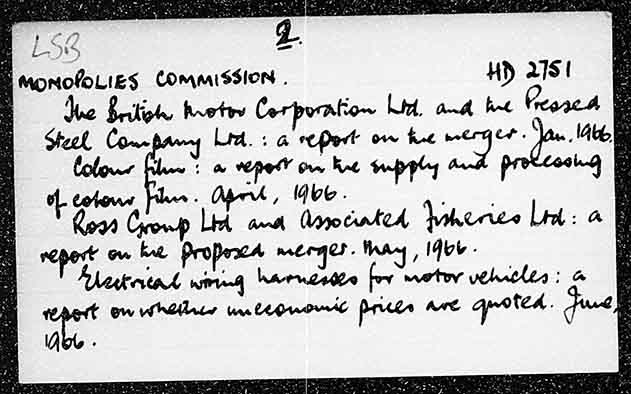 2.
LSB
MONOPOLIES COMMISSION. HD 2751
The British Motor Corporation Ltd. and the Pressed
Steel Company Ltd. : a report on the merger. Jan. 1966.
Colour film : a report on the supply and processing
of colour film. April, 1966.
Ross Group Ltd and Associated Fisheries Ltd : a
report on the proposed merger. May, 1966.
Electrical wiring harnesses for motor vehicles : a
report on whether uneconomic prices are quoted. June,
1966.